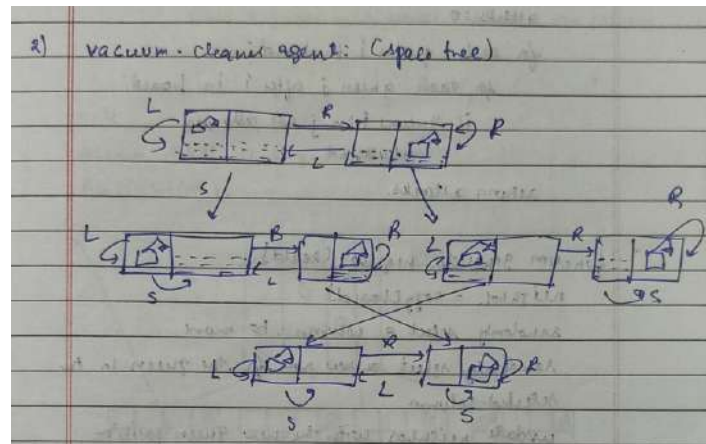 2) vacuum-cleaner agent: (space tree)
L R R
L
S
L R R L R R
L
S S
L R R
L
S S